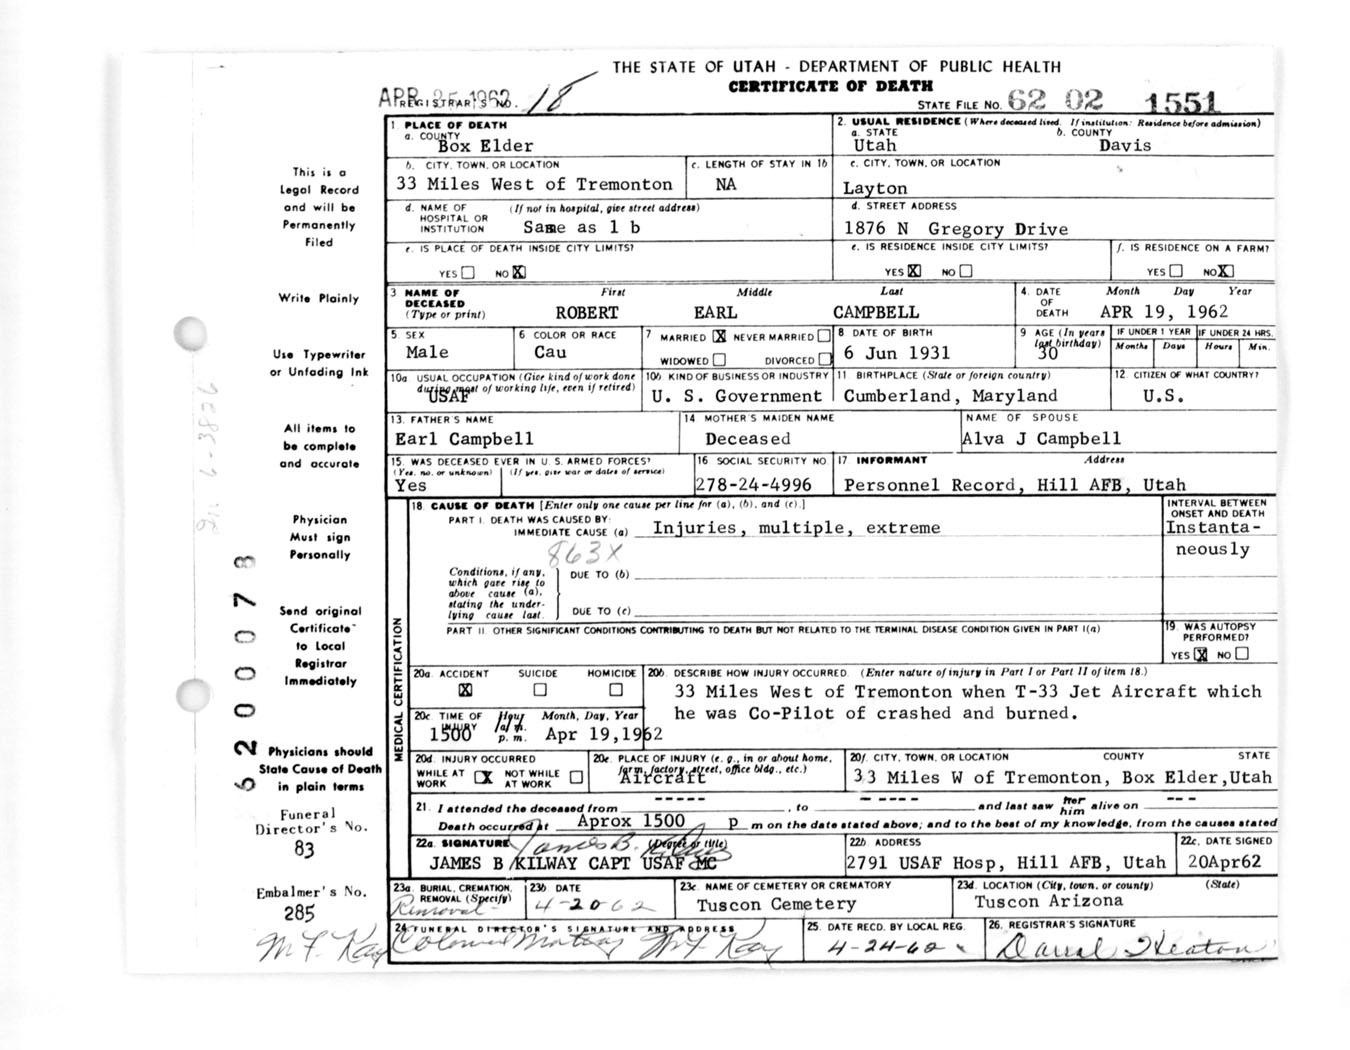 THE STATE OF UTAH - DEPARTMENT OF PUBLIC HEALTH
CERTIFICATE OF DEATH
APR 25 1962
REGISTRAR'S NO. 18
STATE FILE NO. 62 02 1551
1. PLACE OF DEATH
a. COUNTY
Box Elder
2. USUAL RESIDENCE (Where deceased lived. If institution: Residence before admission)
a. STATE b. COUNTY
Utah Davis
b. CITY, TOWN, OR LOCATION
33 Miles West of Tremonton
c. LENGTH OF STAY IN 1b
NA
c. CITY, TOWN, OR LOCATION
Layton
d. NAME OF HOSPITAL OR INSTITUTION (If not in hospital, give street address)
Same as 1 b
d. STREET ADDRESS
1876 N Gregory Drive
e. IS PLACE OF DEATH INSIDE CITY LIMITS?
YES NO X
e. IS RESIDENCE INSIDE CITY LIMITS?
YES X NO
f. IS RESIDENCE ON A FARM?
YES NO X
3 NAME OF DECEASED (Type or print)
First Middle Last
ROBERT EARL CAMPBELL
4. DATE OF DEATH
Month Day Year
APR 19, 1962
5. SEX
Male
6 COLOR OR RACE
Cau
7 MARRIED X NEVER MARRIED
WIDOWED DIVORCED
8 DATE OF BIRTH
6 Jun 1931
9 AGE (In years last birthday)
30
IF UNDER 1 YEAR
Months Days
IF UNDER 24 HRS.
Hours Min.
10a USUAL OCCUPATION (Give kind of work done during most of working life, even if retired)
USAF
10b. KIND OF BUSINESS OR INDUSTRY
U. S. Government
11. BIRTHPLACE (State or foreign country)
Cumberland, Maryland
12. CITIZEN OF WHAT COUNTRY?
U.S.
13. FATHER'S NAME
Earl Campbell
14 MOTHER'S MAIDEN NAME
Deceased
NAME OF SPOUSE
Alva J Campbell
15. WAS DECEASED EVER IN U.S. ARMED FORCES?
(Yes, no, or unknown) (If yes, give war or dates of service)
Yes
16 SOCIAL SECURITY NO.
278-24-4996
17 INFORMANT Address
Personnel Record, Hill AFB, Utah
MEDICAL CERTIFICATION
18 CAUSE OF DEATH [Enter only one cause per line for (a), (b), and (c).]
PART I. DEATH WAS CAUSED BY:
IMMEDIATE CAUSE (a) Injuries, multiple, extreme
863X
INTERVAL BETWEEN ONSET AND DEATH
Instanta-
neously
Conditions, if any, which gave rise to above cause (a), stating the underlying cause last.
DUE TO (b)
DUE TO (c)
PART II. OTHER SIGNIFICANT CONDITIONS CONTRIBUTING TO DEATH BUT NOT RELATED TO THE TERMINAL DISEASE CONDITION GIVEN IN PART I(a)
19. WAS AUTOPSY PERFORMED?
YES X NO
20a. ACCIDENT SUICIDE HOMICIDE
X
20b. DESCRIBE HOW INJURY OCCURRED. (Enter nature of injury in Part I or Part II of item 18.)
33 Miles West of Tremonton when T-33 Jet Aircraft which
he was Co-Pilot of crashed and burned.
20c TIME OF INJURY Hour a.m. p.m. Month, Day, Year
1500 Apr 19,1962
20d. INJURY OCCURRED
WHILE AT WORK X NOT WHILE AT WORK
20e. PLACE OF INJURY (e. g., in or about home, farm, factory, street, office bldg., etc.)
Aircraft
20f. CITY, TOWN, OR LOCATION COUNTY STATE
33 Miles W of Tremonton, Box Elder,Utah
21. I attended the deceased from ----- , to - ---- and last saw her him alive on ---
Death occurred at Aprox 1500 p m on the date stated above; and to the best of my knowledge, from the causes stated
22a. SIGNATURE (Degree or title)
James B. Kilway
JAMES B KILWAY CAPT USAF MC
22b. ADDRESS
2791 USAF Hosp, Hill AFB, Utah
22c. DATE SIGNED
20Apr62
23a. BURIAL, CREMATION, REMOVAL (Specify)
Removal
23b DATE
4-20-62
23c. NAME OF CEMETERY OR CREMATORY
Tuscon Cemetery
23d. LOCATION (City, town, or county) (State)
Tuscon Arizona
24 FUNERAL DIRECTOR'S SIGNATURE AND ADDRESS
M F Kay
25. DATE RECD. BY LOCAL REG.
4-24-62
26. REGISTRAR'S SIGNATURE
This is a
Legal Record
and will be
Permanently
Filed
Write Plainly
Use Typewriter
or Unfading Ink
All items to
be complete
and accurate
Physician
Must sign
Personally
Send original
Certificate
to Local
Registrar
Immediately
Physicians should
State Cause of Death
in plain terms
Funeral
Director's No.
83
Embalmer's No.
285
M F Kay
62 00078